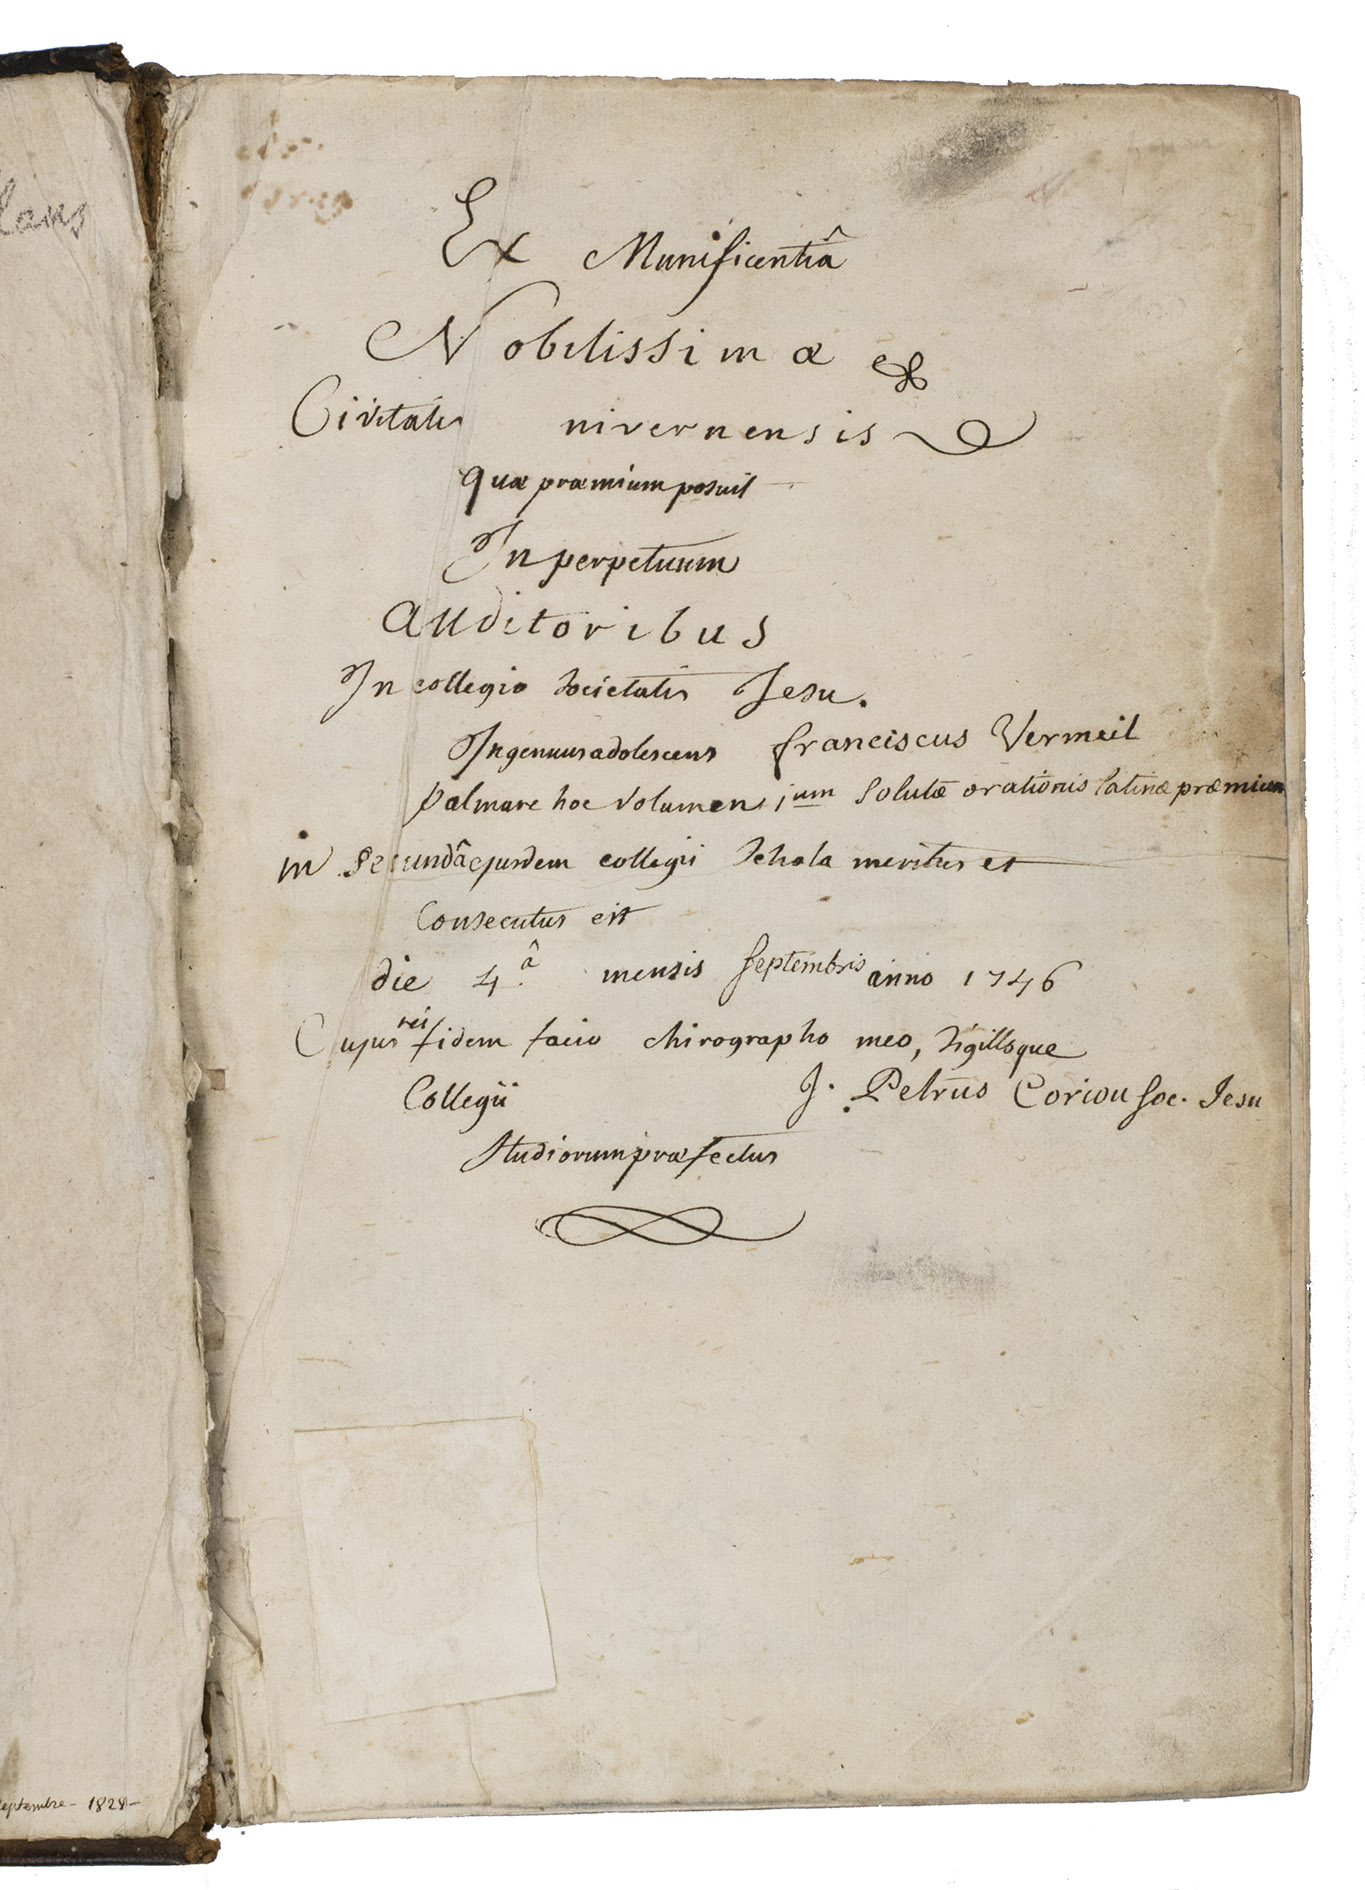 Ex Munificentiâ
Nobilissimæ
Civitatis nivernensis
quæ præmium posuit
In perpetuum
Auditoribus
In collegio Societatis Jesu.
Ingenuus adolescens franciscus Vermeil
palmare hoc volumen 1um Solutæ orationis latinæ præmium
in secundâ ejusdem collegii Schola meritus et
Consecutus est
die 4.â mensis septembris anno 1746
Cujus rei fidem facio chirographo meo, sigilloque
Collegii J. Petrus Coriou soc. Jesu
Studiorum præfectus
septembre - 1828 -